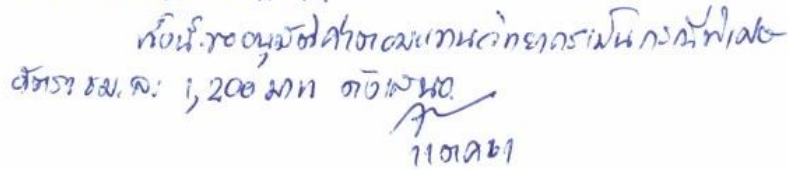 ทั้งนี้ขออนุมัติค่าตอบแทนวิทยากรเป็นกรณีพิเศษ
อัตรา ชม.ละ 1,200 บาท ดังเสนอ